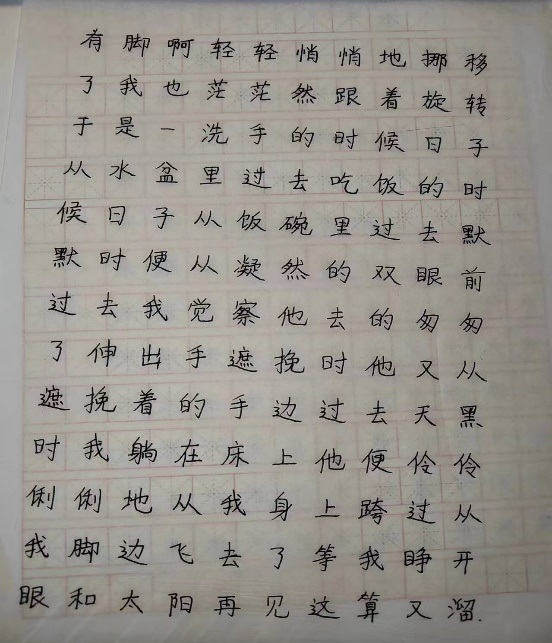 有脚啊轻轻悄悄地挪移
了我也茫茫然跟着旋转
于是一洗手的时候日子
从水盆里过去吃饭的时
候日子从饭碗里过去默
默时便从凝然的双眼前
过去我觉察他去的匆匆
了伸出手遮挽时他又从
遮挽着的手边过去天黑
时我躺在床上他便伶伶
俐俐地从我身上跨过从
我脚边飞去了等我睁开
眼和太阳再见这算又溜.